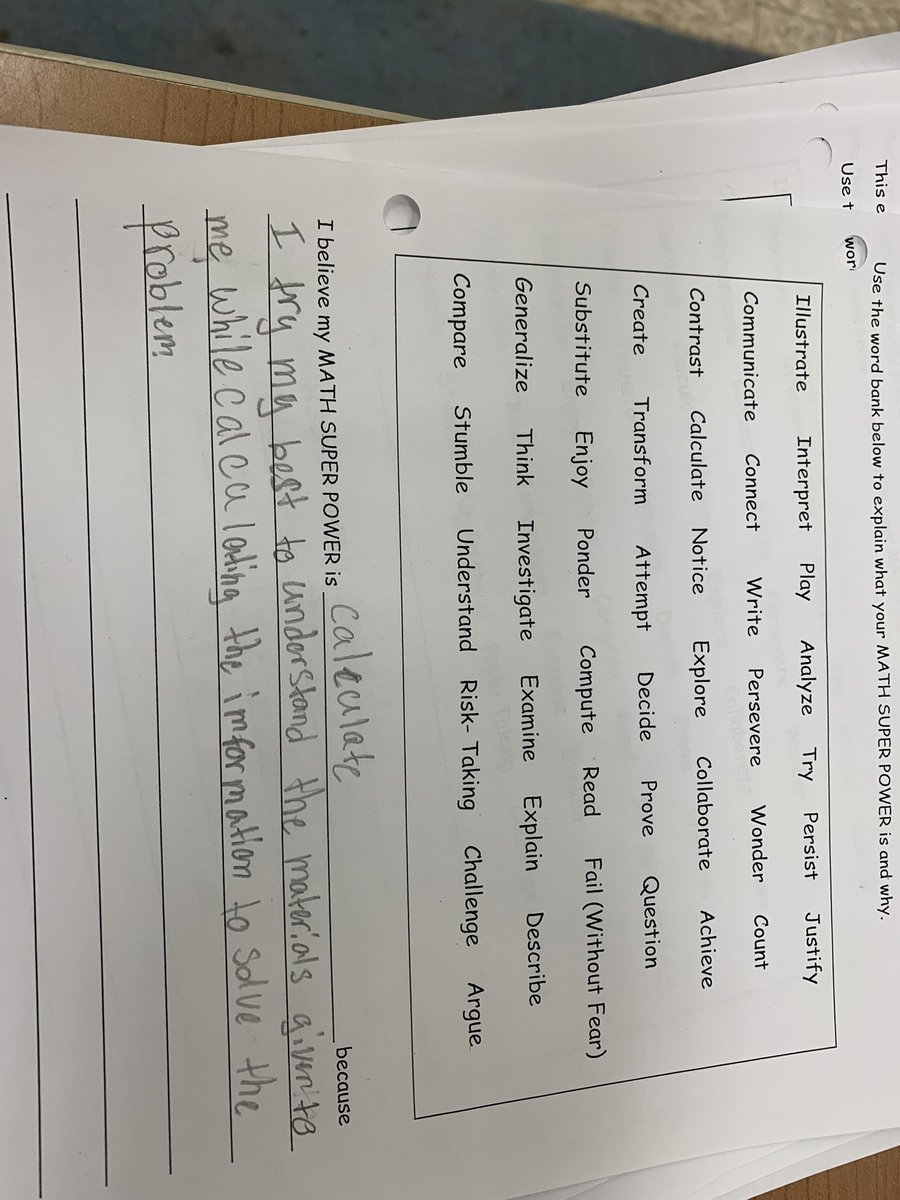 This e
Use t
Use the word bank below to explain what your MATH SUPER POWER is and why.
wor
Illustrate Interpret Play Analyze Try Persist Justify
Communicate Connect Write Persevere Wonder Count
Contrast Calculate Notice Explore Collaborate Achieve
Create Transform Attempt Decide Prove Question
Substitute Enjoy Ponder Compute Read Fail (Without Fear)
Generalize Think Investigate Examine Explain Describe
Compare Stumble Understand Risk- Taking Challenge Argue
I believe my MATH SUPER POWER is calculate because
I try my best to understand the materials given to
me while calculating the information to solve the
problem